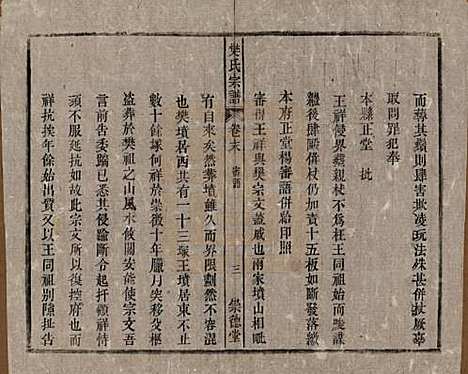 而蓦其類則肆害欺凌玩法殊甚併拟厥辜
取問罪犯奉
本縣正堂 批
王祥侵界毀親杖不為枉王同祖始而唆謀
繼後肆毆併杖仍加責十五板如斷發落繳
本府正堂楊審語併給印照
審得王祥與樊宗文蓋戚也兩家墳山相毗
有自來矣然葬墳雖久而界限劃然不容混
樊氏宗譜 卷末 審語 三 崇德堂
也樊墳居西共有一十三塚王墳居東者有
數十餘塚何祥於崇徵十年臘月突移父柩
盜葬於樊祖之山風水攸關安能使宗文吾
言前告委勘已悉其侵論斷今起扦賴祥奸
頑不服如故此宗文所以復控府也而
祥抗挨年餘始出質又以王同祖別隱扯估